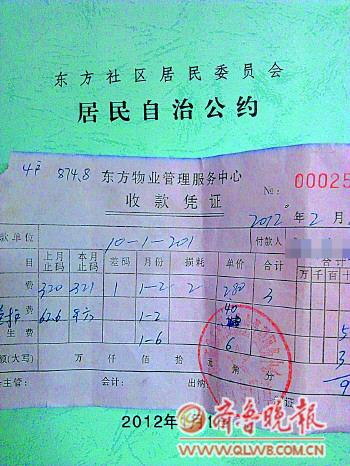 东方社区居民委员会
居民自治公约
4户 874.8 东方物业管理服务中心
收款凭证 №: 00025
2012年2月
款单位 10-1-201 付款人
目 上月止码 本月止码 差码 月份 损耗 单价 合计 合计
万千百十
费 320 321 1 1-2 2 2.80 3
626 1-2 40 5
生费 1-6 6 3
额(大写) 万 仟 佰 拾 元 角 分 9
主管: 会计: 出纳:
2012年 月1
齐鲁晚报
WWW.QLWB.COM.CN